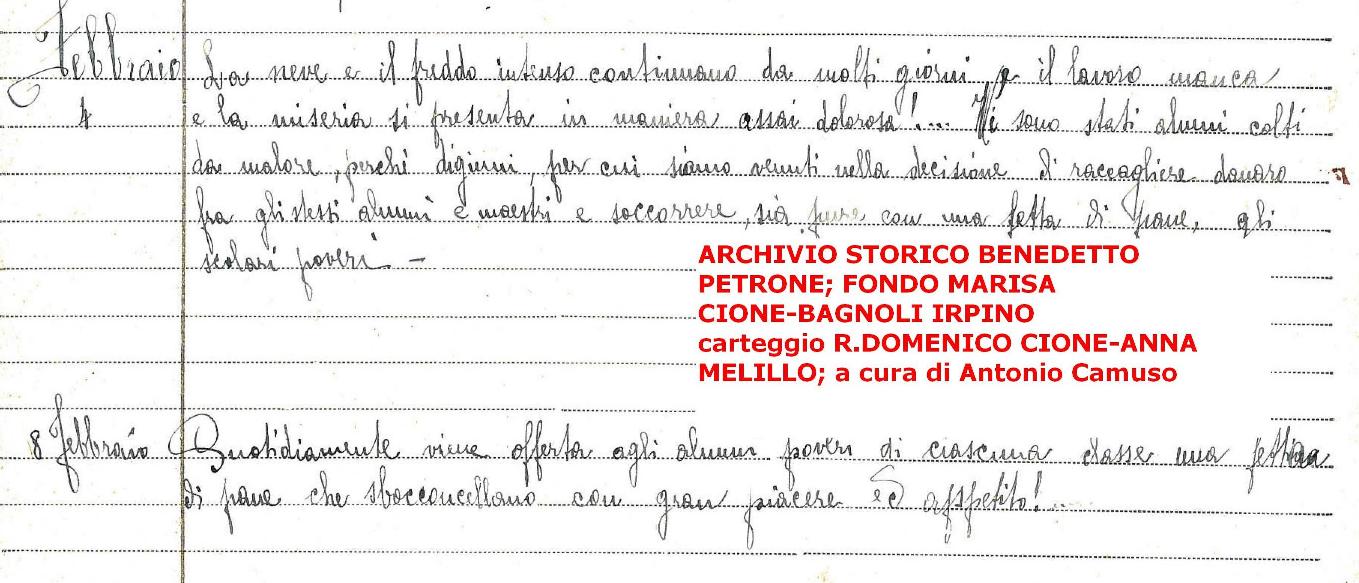 Febbraio La neve e il freddo intenso continuano da molti giorni, e il lavoro manca
4 e la miseria si presenta in maniera assai dolorosa!... Vi sono stati alunni colti
da malore, perché digiuni, per cui siamo venuti nella decisione di raccogliere danaro
fra gli stessi alunni e maestri e soccorrere, sia pure con una fetta di pane, gli
scolari poveri –
ARCHIVIO STORICO BENEDETTO
PETRONE; FONDO MARISA
CIONE-BAGNOLI IRPINO
carteggio R.DOMENICO CIONE-ANNA
MELILLO; a cura di Antonio Camuso
8 Febbraio Quotidiamente viene offerta agli alunni poveri di ciascuna classe una fettina
di pane che sbocconcellano con gran piacere ed appetito!...